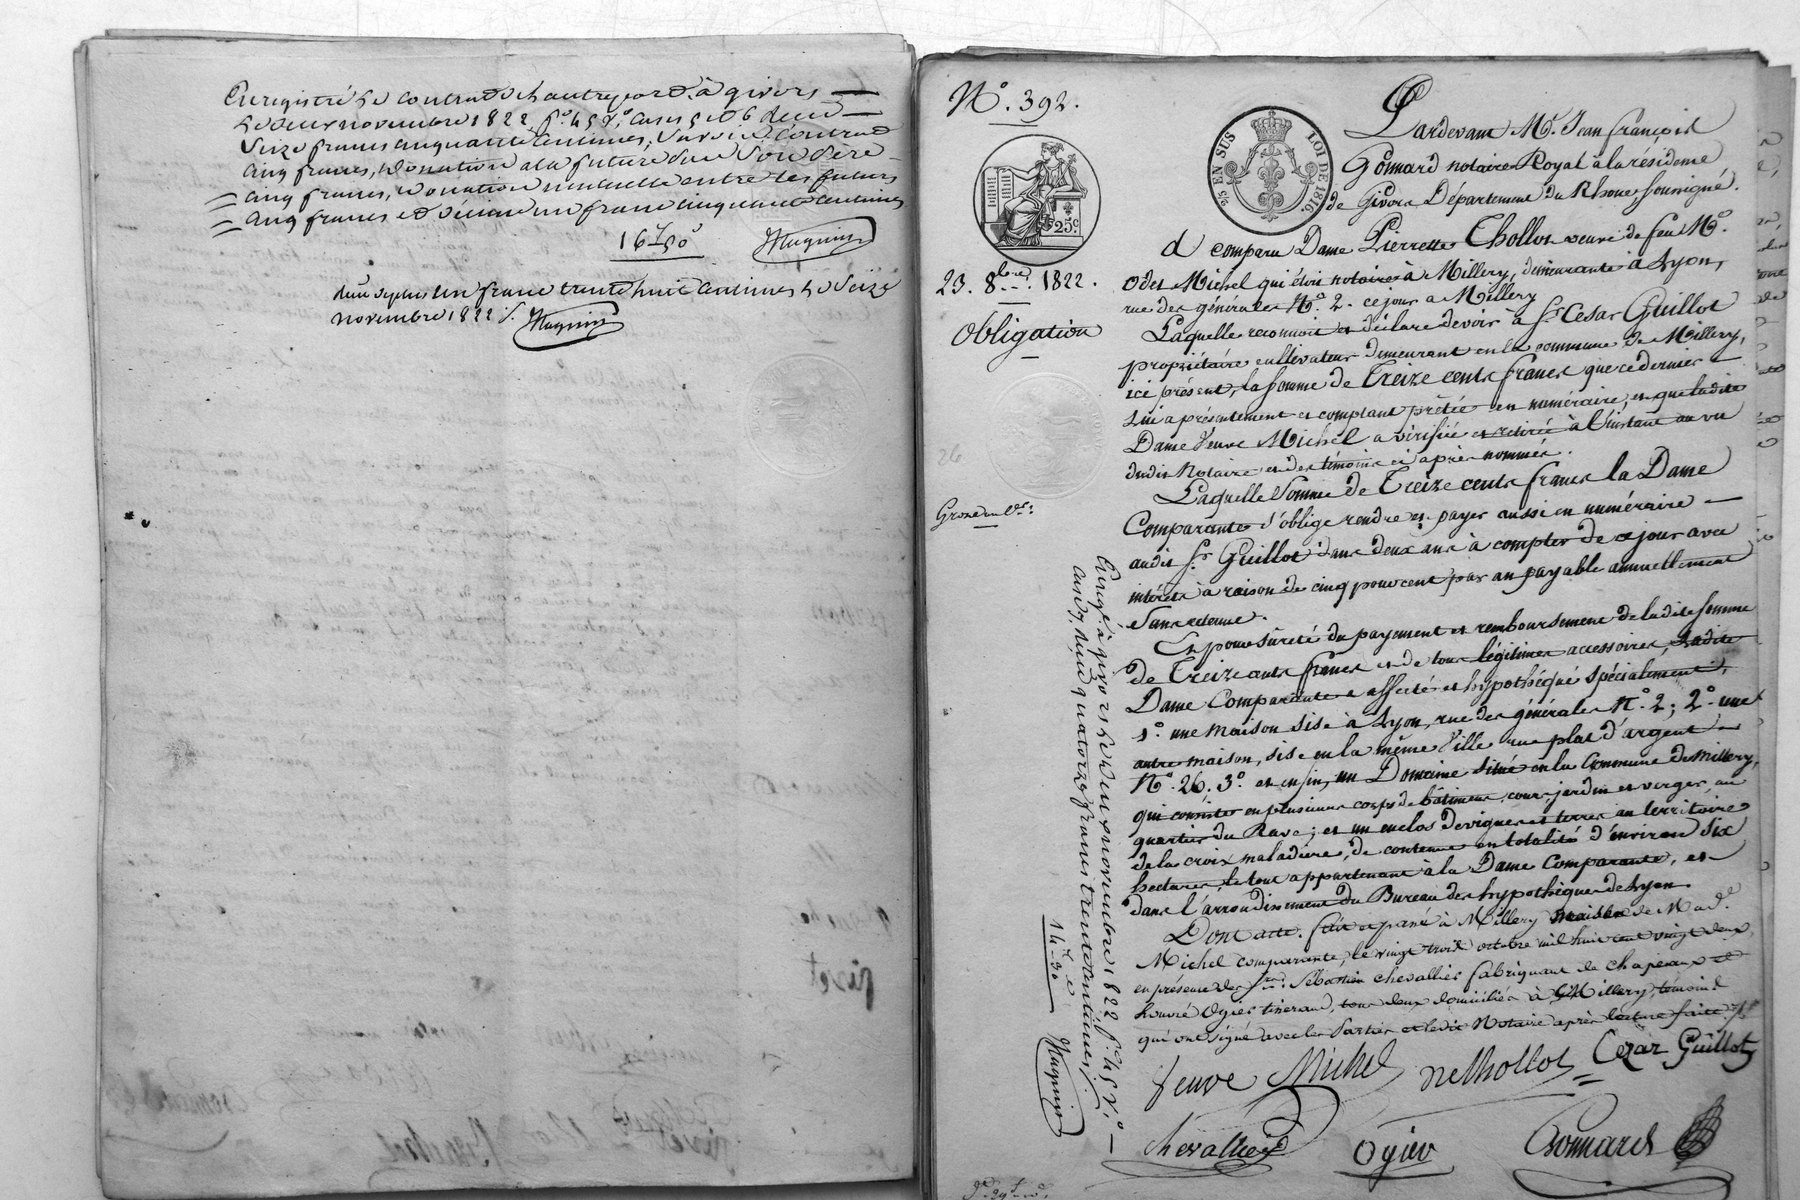 Enregistré le contrat de l'autre part à givors
le deux novembre 1822 f.° 45 v.° cases 5 et 6 reçu
Seize francs cinquante centimes, Savoir Contrat
cinq francs, donation à la future par Son Père
cinq francs, donation mutuelle entre les futurs
cinq francs et décime un franc cinquante centimes
16 f 50 c
Hugunin
Reçu de plus un franc trente huit Centimes le Seize
novembre 1822 /. Hugunin
N.° 392.
25 c
2/5 EN SUS LOI DE 1816.
23. 8bre. 1822.
Obligation
26
Grosse
Pardevant M.e Jean François
Gonnard notaire Royal à la résidence
de Givors Département du Rhone, Soussigné.
a comparu Dame Pierrette Chollot veuve de feu M.r
Odet Michel qui étoit notaire à Millery, demeurante à Lyon,
rue des générales N.° 2. ce jour à Millery
Laquelle reconnoit et déclare devoir à S.r Cesar Guillot
propriétaire cultivateur demeurant en la commune de Millery,
ici présent, la somme de Treize cents francs que ce dernier
lui a présentement et comptant prêtée en numéraire, et que ladite
Dame Veuve Michel a vérifiée et retirée à l'instant au vu
dudit Notaire et des témoins ci après nommés.
Laquelle Somme de Treize cents francs la Dame
Comparante s'oblige rendre et payer aussi en numéraire
audit S.r Guillot dans deux ans à compter de ce jour avec
intérêts à raison de cinq pour cent par an payable annuellement
Sans retenue.
Et pour sûreté du payement et remboursement de ladite somme
de Treize cents francs et de tous légitimes accessoires, ladite
Dame Comparante a affecté et hypothéqué spécialement,
1.° une maison sise à Lyon, rue des générales N.° 2; 2.° une
autre maison, sise en la même Ville rue plat d'argent
N.° 26. 3.° et enfin, un Domaine situé en la Commune de Millery,
qui consiste en plusieurs corps de bâtiment, cour, jardin et verger, au
quartier du Rave; et un enclos de vignes et terres au territoire
de la croix maladière, de contenue en totalité d'environ six
hectares, le tout appartenant à la Dame Comparante, et
dans l'arrondissement du Bureau des hypothèques de Lyon.
Dont acte. fait et passé à Millery maison de Mad.e
Michel comparante, le vingt trois octobre mil huit cent vingt deux,
en présence des S.rs Sébastien chevallier fabriquant de chapeaux et
honoré Ogier tisserand, tous deux domiciliés à Millery, témoins
qui ont signé avec les Parties et ledit Notaire après lecture faite /.
Veuve Michel née Chollot Cezar Guillot
Chevallier Ogier Gonnard
Enreg.é à givors le deux novembre 1822 f.° 45 v.°
case 7, reçu quatorze francs trente centimes /.
14 f 30 c
Hugunin